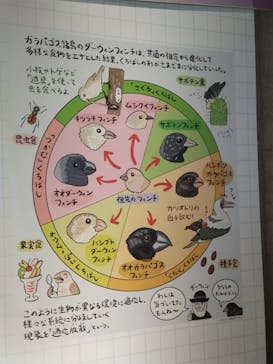 ガラパゴス諸島のダーウィンフィンチは、共通の祖先から進化して
多様な食物をエサとした結果、くちばしのかたちがさまざまに分化していった。
小枝やトゲなど
「道具」を使って
虫を食べるよ
さぐるくちばし
サボテン食
キツツキフィンチ
ムシクイフィンチ
サボテンフィンチ
昆虫食
つかむくちばし
オオダーウィン
フィンチ
祖先のフィンチ
ハシボソ
ガラパゴス
フィンチ
カツオドリの
血を飲む!
果実食
ハシブト
ダーウィン
フィンチ
オオガラパゴス
フィンチ
くだくくちばし
種子食
ダーウィン
わしは
気づいてた
もんね〜
このように生物が異なる環境に適応し、
様々な系統に分岐していく
現象を「適応放散」という。